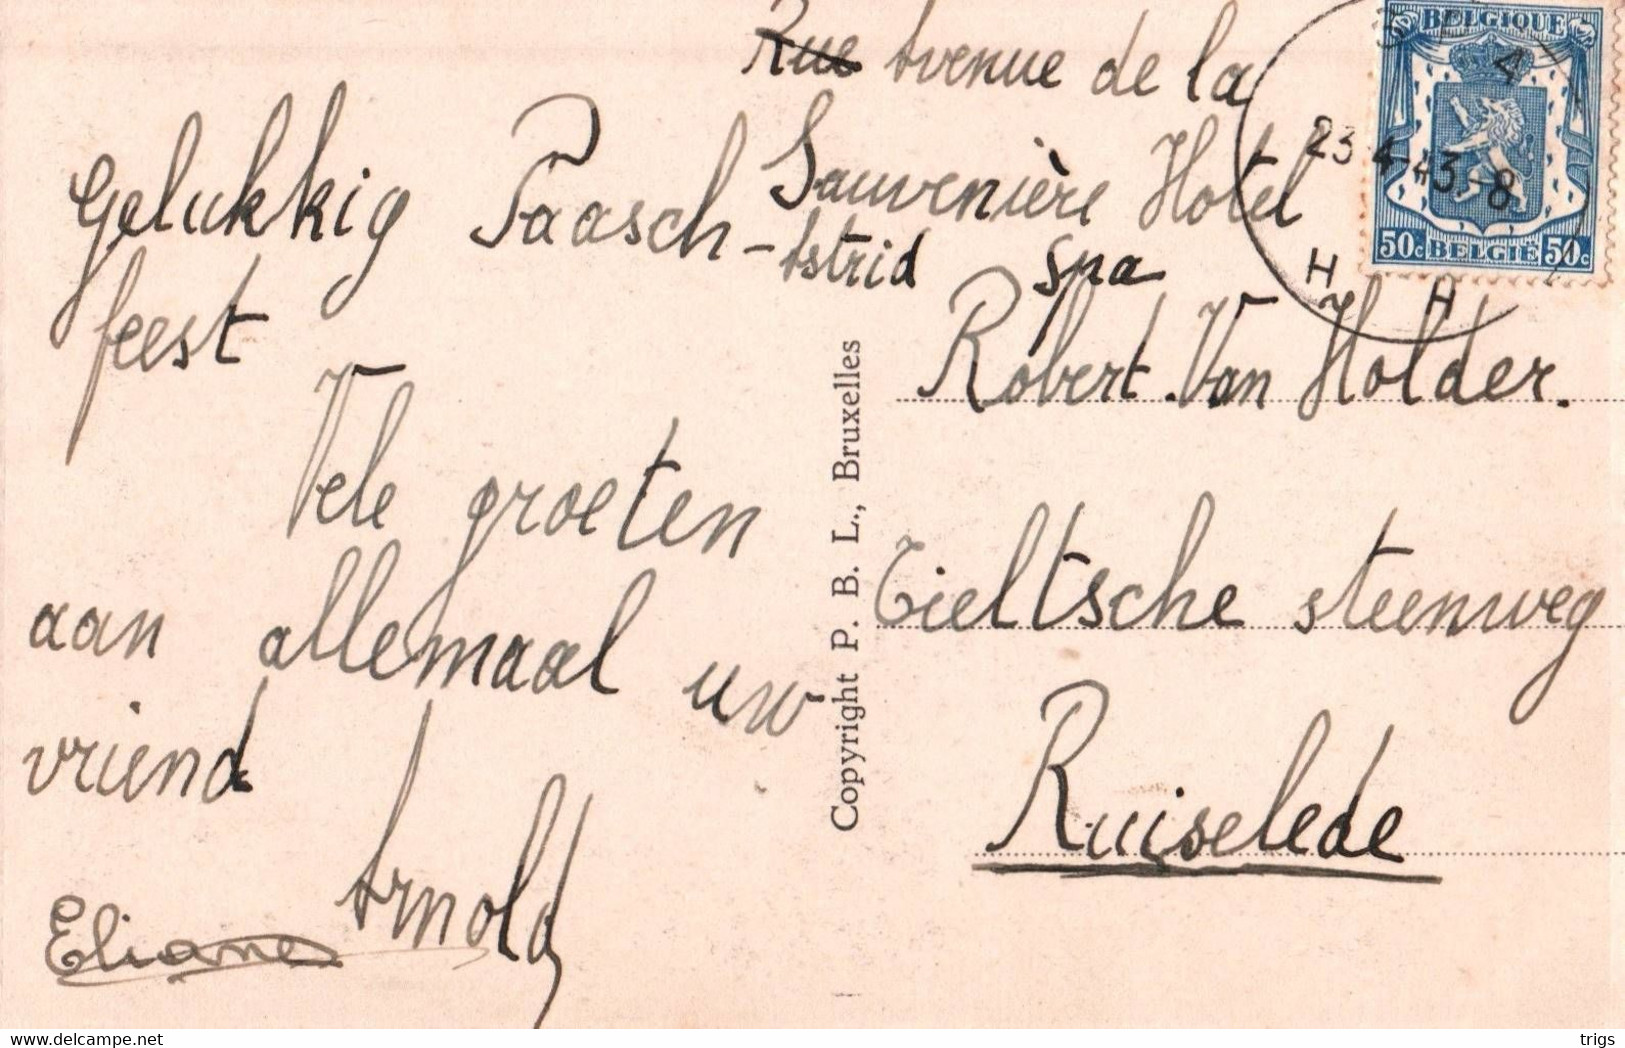 Rue Avenue de la
Sauvenière Hotel
Astrid Spa
Gelukkig Paasch-
feest
Vele groeten
aan allemaal uw
vriend
Arnold
Eliane
Copyright P. B. L., Bruxelles
BELGIQUE
50c BELGIË 50c
4
23 4-43.-8
H H
Robert Van Holder.
Tieltsche steenweg
Ruiselede
www.delcampe.net
trigs